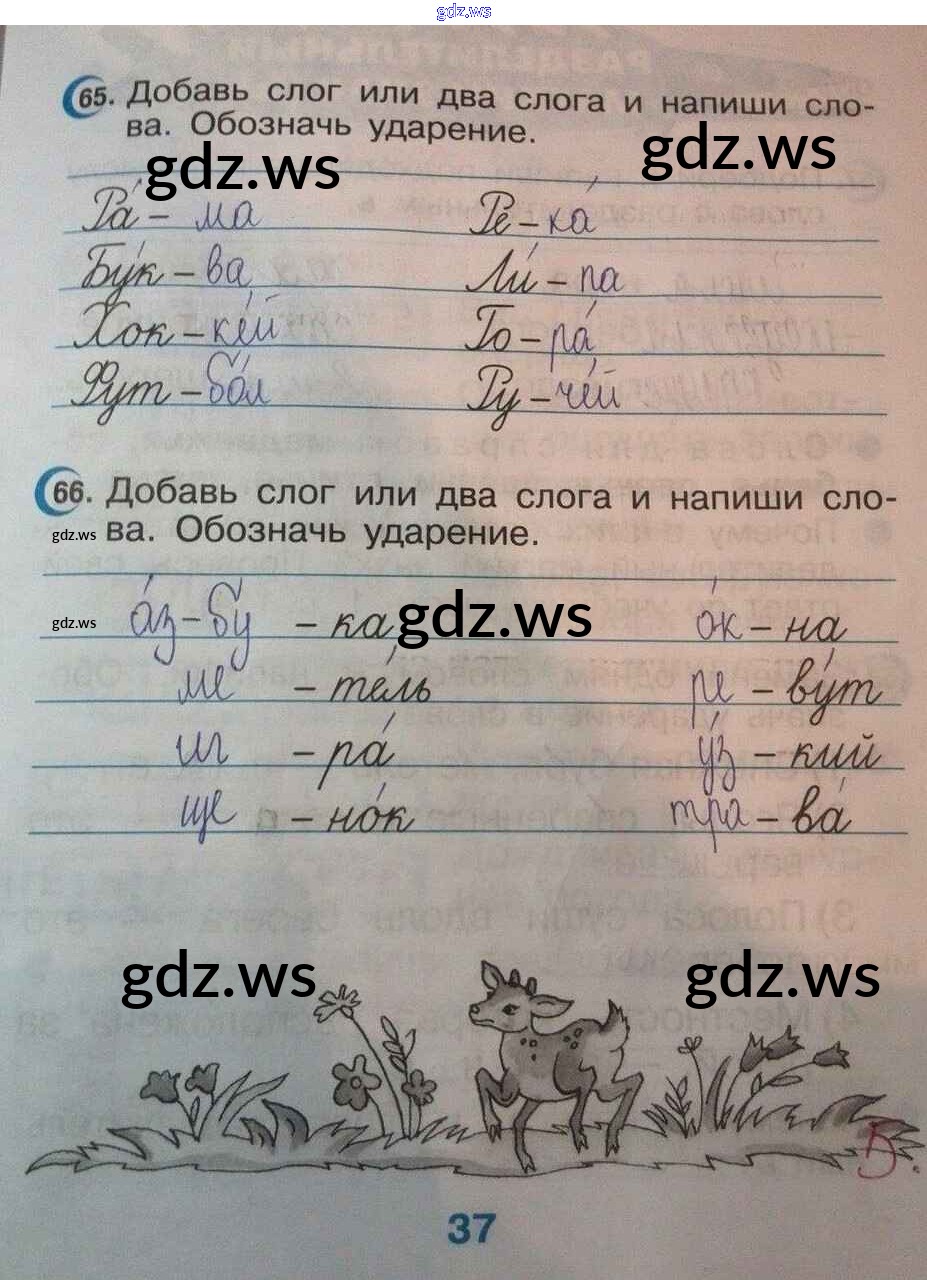 gdz.ws
65. Добавь слог или два слога и напиши сло-
ва. Обозначь ударение.
gdz.ws gdz.ws
Ра́ - ма Ре - ка́
Бу́к - ва Ли́ - па
Хок - ке́й Го - ра́
Фут - бо́л Ру - че́й
66. Добавь слог или два слога и напиши сло-
gdz.ws ва. Обозначь ударение.
gdz.ws а́з - бу - ка gdz.ws о́к - на
ме - те́ль ре - ву́т
иг - ра́ у́з - кий
ще - но́к тра - ва́
gdz.ws gdz.ws
5.
37